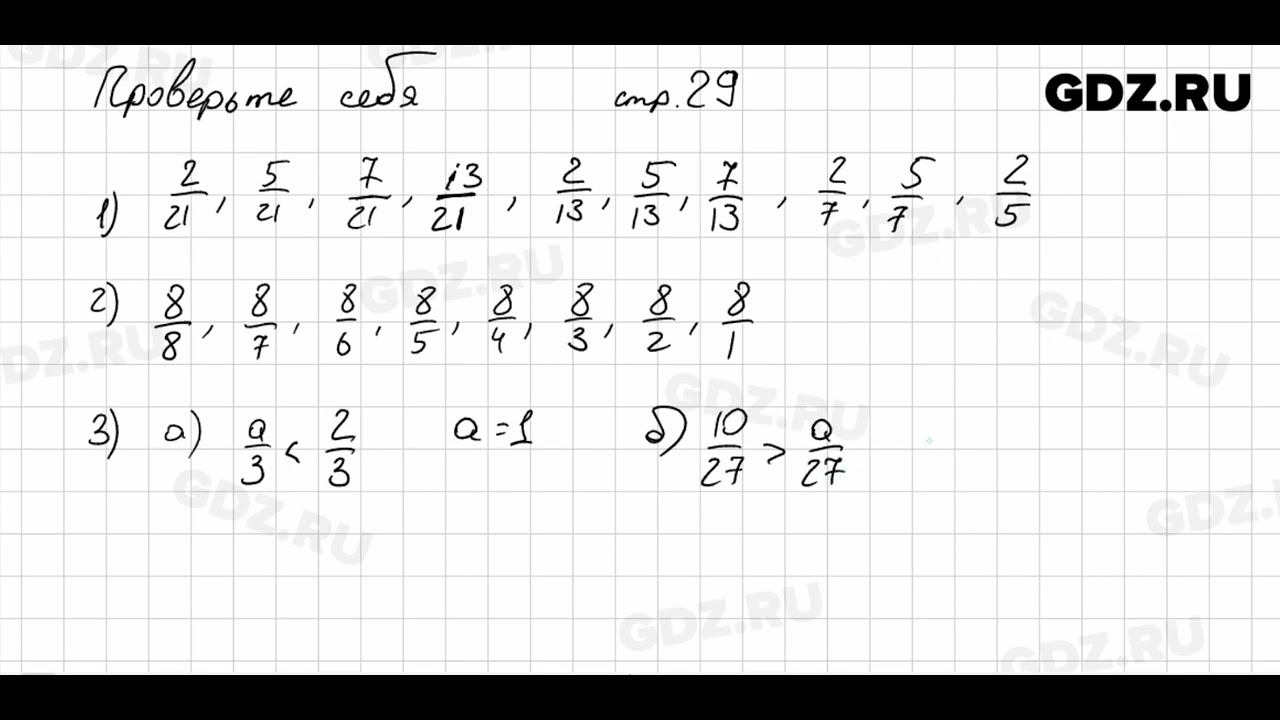 Проверьте себя стр. 29
GDZ.RU
1) 2/21, 5/21, 7/21, 13/21, 2/13, 5/13, 7/13, 2/7, 5/7, 2/5
2) 8/8, 8/7, 8/6, 8/5, 8/4, 8/3, 8/2, 8/1
3) а) a/3 < 2/3 a = 1 б) 10/27 > a/27
GDZ.RU
GDZ.RU
GDZ.RU
GDZ.RU
GDZ.RU
GDZ.RU
GDZ.RU
GDZ.RU
GDZ.RU
GDZ.RU